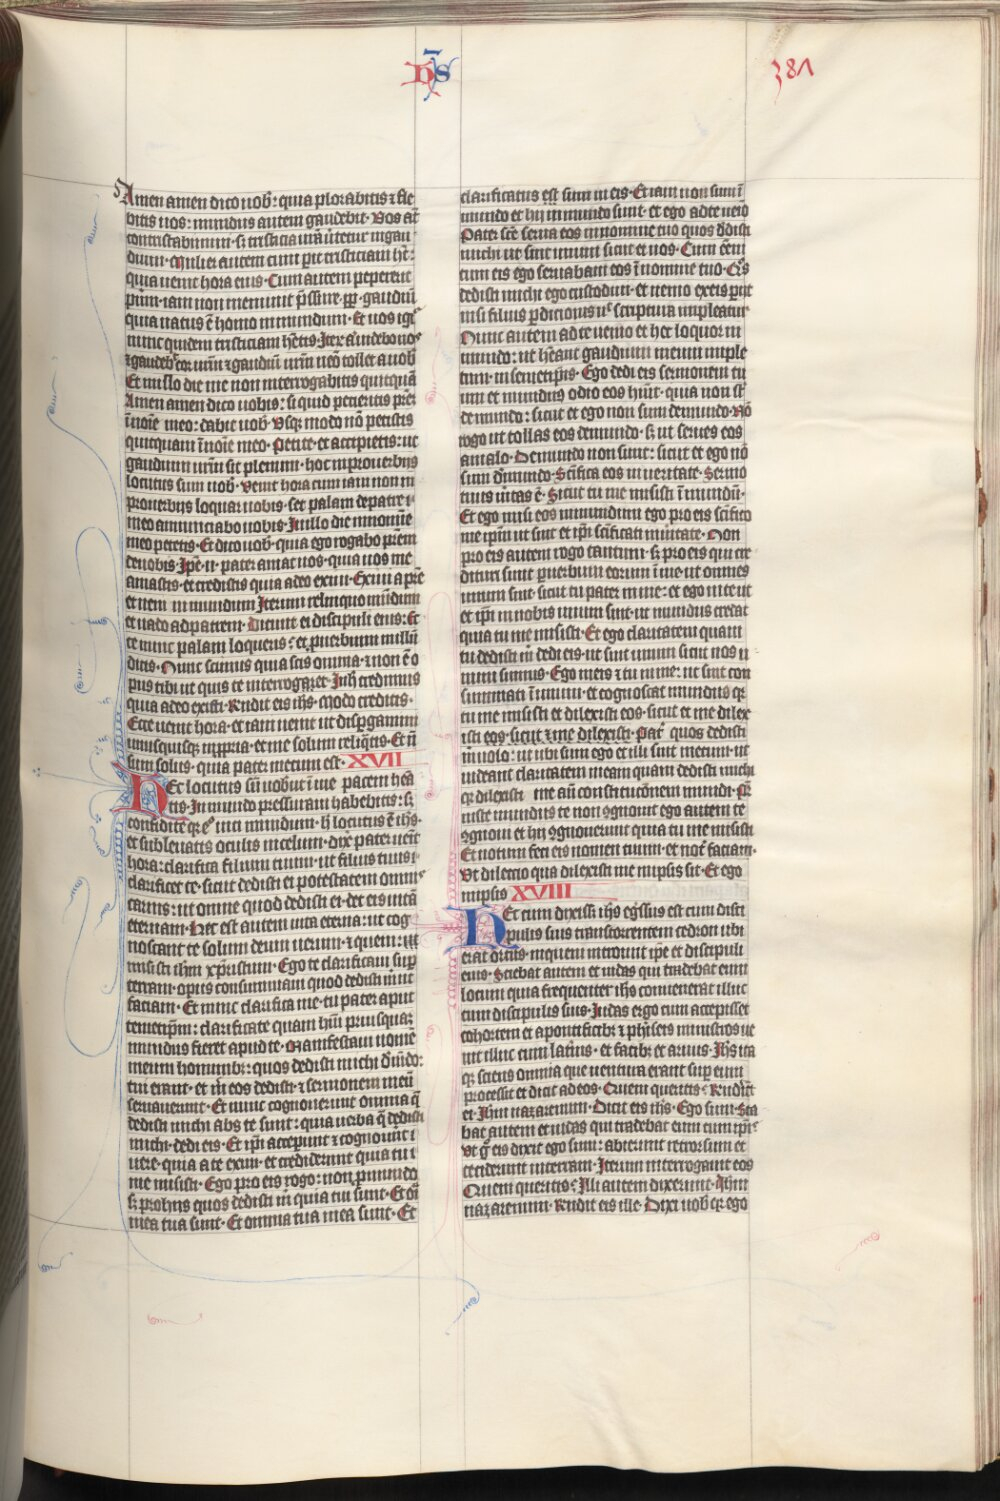 hs̄
381
Amen amen dico uob: quia plorabitis ⁊ fle
bitis uos: mundus autem gaudebit· Vos at̄
contristabimini· s; tristicia ur̄a ūtetur in gau
dium· Mulier autem cum pit̄ tristiciam h̄t:
quia uenit hora eius· Cum autem pepererit
puerum· iam non meminit p̄ssure· pp̄· gaudiū
quia natus ē homo in mundum· Et uos igr̄
nunc quidem tristiciam h̄etis· Iter̄ aū uidebo uos
⁊ gaudeb̄ cor ur̄m ⁊ gaudiū ur̄m nēo tollet a uob̄
Et in illo die me non interrogabitis quicquā
Amen amen dico uobis: si quid petieritis p̄rem
ī noīe meo: dabit uob̄· Vsq; modo nō petistis
quicquam ī noīe meo· Petite· et accipietis: ut
gaudium ur̄m sit plenum· hoc in prouerbijs
locutus sum uob̄· Venit hora cum iam non in
prouerbijs loquar uobis· set palam de patre
meo annunciabo uobis· In illo die in nomīe
meo petetis· Et dico uob̄· quia ego rogabo pr̄em
de uobis· Ip̄e n̄· pater amat uos· quia uos me
amastis· et credistis quia a deo exiui· Exiui a p̄re
et ueni in mundum Iterum relinquo mūdum
et uado ad patrem· Dicunt ei discipuli eius: Ec
ce nunc palam loqueris: et puerbium nullū
dicis· Nunc scimus quia scis omnia· ⁊ non ē o
pus tibi ut quis te interroget· In h̄ credimus
quia a deo existi· Rn̄dit eis ih̄s· Modo creditis·
Ecce uenit hora· et iam uenit ut dispgamini
unusquisq; in pp̄ria· et me solum relīq̄tis· Et n̄
sum solus· quia pater mecum est· XVII
Hec locutus sū uob̄ ut ī me pacem hēa
tis· In mundo pressuram habebitis: s;
confidite qr̄ e° uici mundum· h̄ locutus ē ih̄s·
et subleuatis oculis in celum· dix̄ pater uēit
hora: clarifica filium tuum· ut filius tuus
clarificet te· sicut dedisti ei potestatem omnis
carnis: ut omne quod dedisti ei· det eis uitā
eternam· Hec est autem uita eterna: ut cog
noscant te solum deum uerum· ⁊ quem
misisti ih̄m xp̄ristum· Ego te clarificaui sup̄
terram· opus consummaui quod dedisti m̄ ut
faciam· Et nunc clarifica me· tu pater aput
temetip̄m: claritate quam hūi priusquam
mundus fieret apud te· Manifestaui nomē
tuum hominib;: quos dedisti michi d̄ mūdo:
tui erant· et m̄ eos dedisti· ⁊ sermonem meū
seruauerunt· Et nunc cognouerunt omnia q̄
dedisti michi abs te sunt: quia uerba q̄ dedisti
michi· dedi eis· Et ip̄i acceperunt ⁊ cognouer̄t
uere· quia a te exiui· et crediderunt quia tu
me misisti· Ego pro eis rogo: non p mundo
s; pro hijs quos dedisti m̄ quia tui sunt· Et oīa
mea tua sunt· Et omnia tua mea sunt· Et
clarificatus est sum in eis· Et iam non sum ī
mundo et hij in mundo sunt· et ego ad te uenio
Pater sc̄e serua eos in nomine tuo quos dedisti
michi ut sint unum sicut et nos· Cum eēm
cum eis ego seruabam eos ī nomine tuo· Q°s
dedisti michi ego custodiui· et nemo ex eis p̄ijt
nisi filius pdicionis ut scriptura impleatur
Nunc autem ad te uenio et hec loquor in
mundo: ut hēant gaudium meum imple
tum in semetip̄is· Ego dedi eis sermonem tu
um et mundus odio eos hūit· quia non sūt
de mundo: sicut et ego non sum de mundo· Nō
rogo ut tollas eos de mundo· s; ut serues eos
a malo· De mundo non sunt: sicut et ego nō
sum d̄ mundo· Sc̄ifica eos in ueritate· Sermo
tuus ūitas ē· Sicut tu me misisti ī mundū·
Et ego misi eos in mundum ego pro eis sc̄ifico
me ip̄m ut sint et ip̄i sc̄ificati in ūitate· Non
pro eis autem rogo tantum· s; pro eis qui cre
dituri sunt p uerbum eorum ī me· ut omnes
unum sint· sicut tu pater in me: et ego in te ut
et ip̄i in nobis unum sint· ut mundus credat
quia tu me misisti· Et ego claritatem quam
tu dedisti m̄ dedi eis· ut sint unum sicut nos u
num sumus· Ego in eis ⁊ tu in me: ut sint con
summati ī unum· et cognoscat mundus q̄
tu me misisti et dilexisti eos· sicut et me dilex
isti eos· sicut ⁊ me dilexisti· Pat̄ quos dedisti
m̄ uolo: ut ubi sum ego et illi sint mecum· ut
uideant claritatem meam quam dedisti michi
q̄ dilexisti me an̄ constitucōnem mundi· P̄r
iuste mundus te non ꝯgnouit ego autem te
ꝯgnoui et hij ꝯgnouerunt quia tu me misisti
Et notum feci eis nomen tuum· et not̄ faciam·
Vt dilectio qua dilexisti me in ip̄sis sit· Et ego
in ipsis XVIII
Hec cum dixisset ih̄s eg̃ssus est cum disci
pulis suis trans torrentem cedron ubi
erat ortus· in quem introiuit ip̄e et discipuli
eius· Sciebat autem et iudas qui tradebat eum
locum quia frequenter ih̄s conuenerat illuc
cum discipulis suis· Iudas ergo cum accepisset
cohortem et a pontificib; ⁊ phr̄iseis ministros ue
nit illuc cum lat̄nis· et facib; et armis· Ih̄s ita
q; sciens omnia que uentura erant sup eum
processit et dicit ad eos· Quem queritis· Rn̄dūt
ei· Ih̄m nazarenum· Dicit eis ih̄s· Ego sum· Sta
bat autem et iudas qui tradebat eum cum ip̄is
Vt g° eis dixit ego sum: abierunt retrorsum et
ceciderunt in terram· Iterum interrogauit eos
Quem queritis· Illi autem dixerunt· Ih̄m
nazarenum· Rn̄dit eis ille· Dixi uob̄ q̄ ego